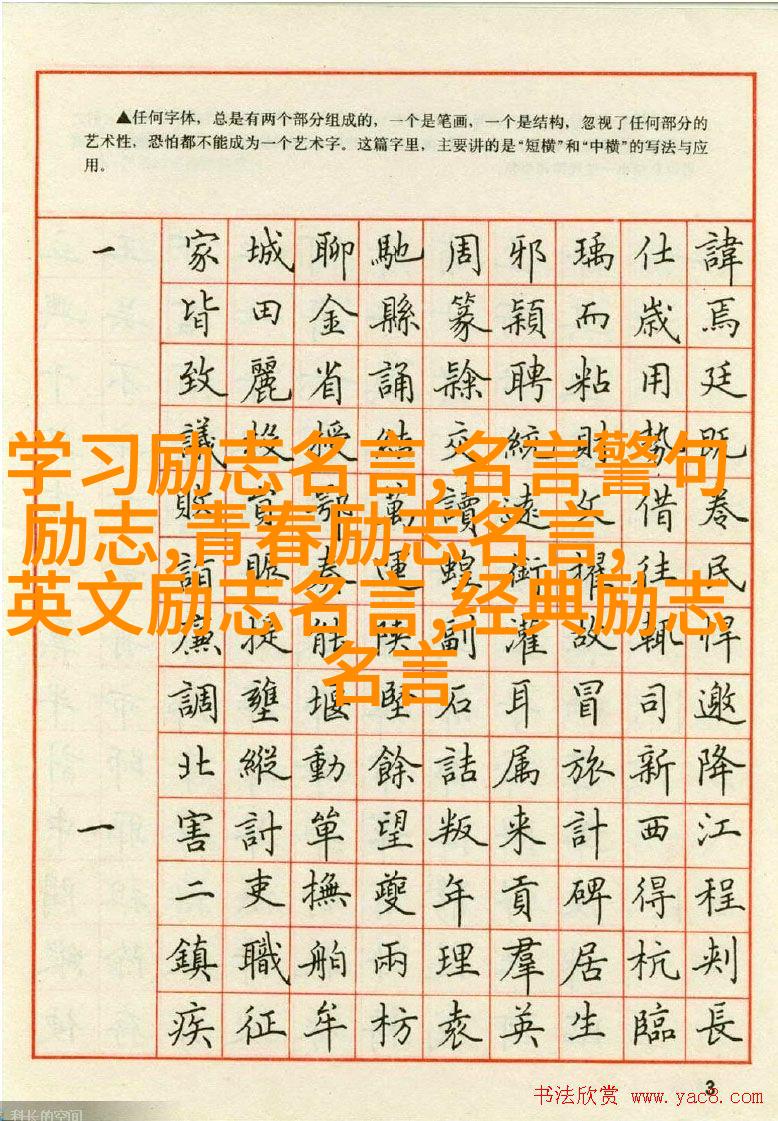 ▲任何字体，总是有两个部分组成的，一个是笔画，一个是结构，忽视了任何部分的
艺术性，恐怕都不能成为一个艺术字。这篇字里，主要讲的是“短横”和“中横”的写法与应
用。
一 家城聊馳周邪瑀仕諱
皆田金縣篆穎而歲焉
致麗省誦隸聘粘用廷
議投授結交統財勢既
鄂萬讀遠文借卷
詣賑秦運蝗銜擢往民
廉提能陝副灌故輒悍
調壅堰石耳冒司邀
北縱動餘詰属旅新降
一 害討望叛来計西江
二吏撫夔年貢碑得程
鎮職舶兩理羣居杭刺
疾征牟枋袁英生臨長
学习励志名言,名言警句
励志,青春励志名言,
英文励志名言,经典励志
名言
3
书法欣赏 www.yac8.com
科长的空间